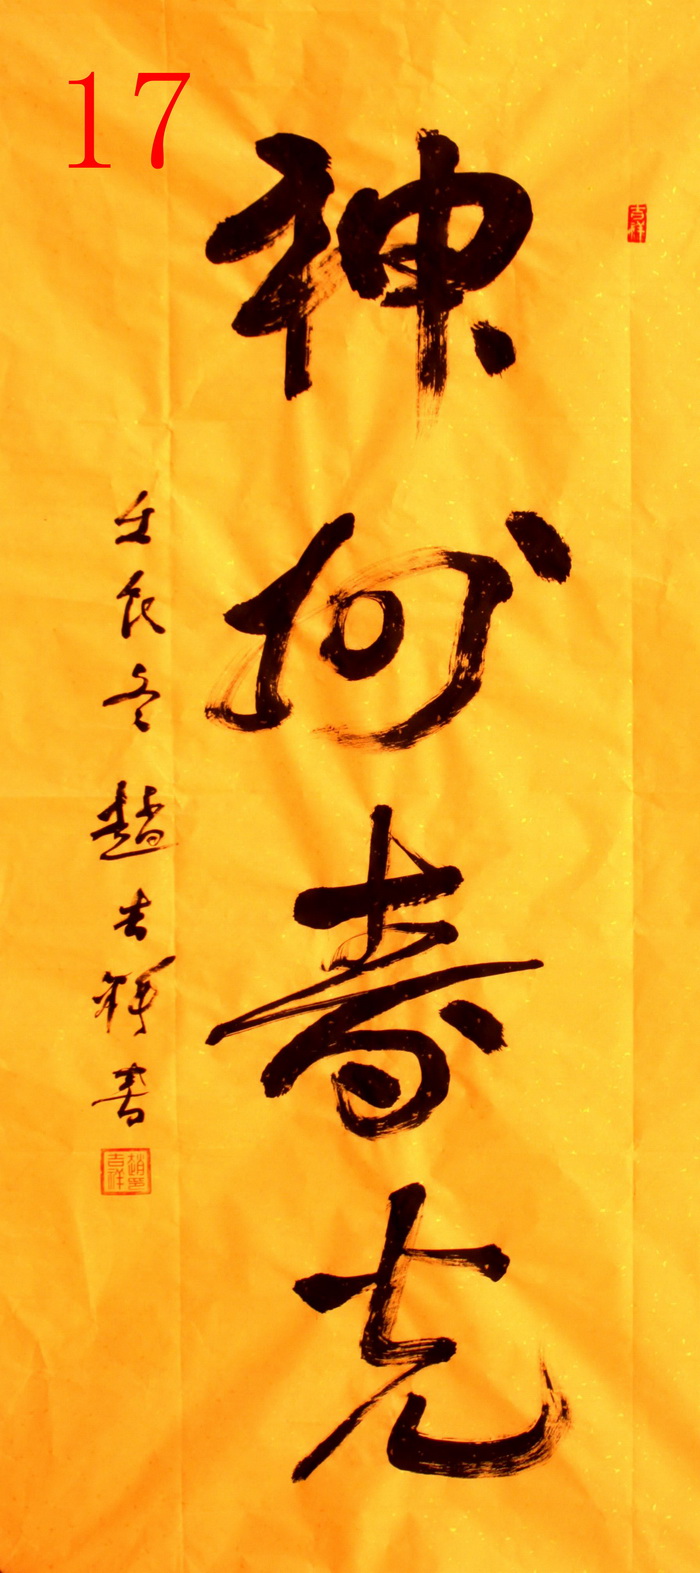 17
吉祥
神州春光
壬辰冬趙吉祥書
趙吉祥印